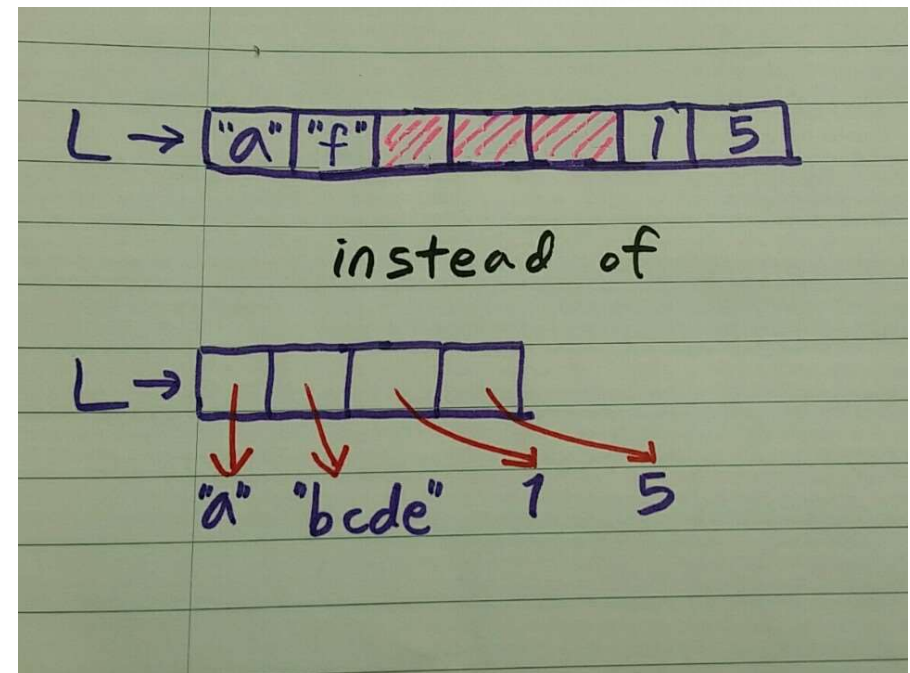 L → "a" "f" 1 5
instead of
L →
"a" "bcde" 1 5